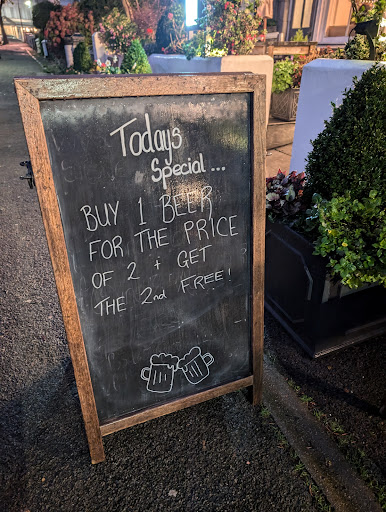 Todays
Special...
BUY 1 BEER
FOR THE PRICE
OF 2 + GET
THE 2nd FREE!